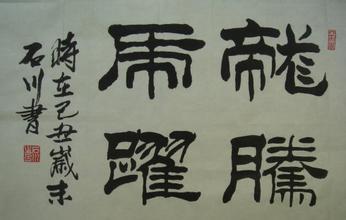 龍騰
虎躍
時在己丑歲末
石川書